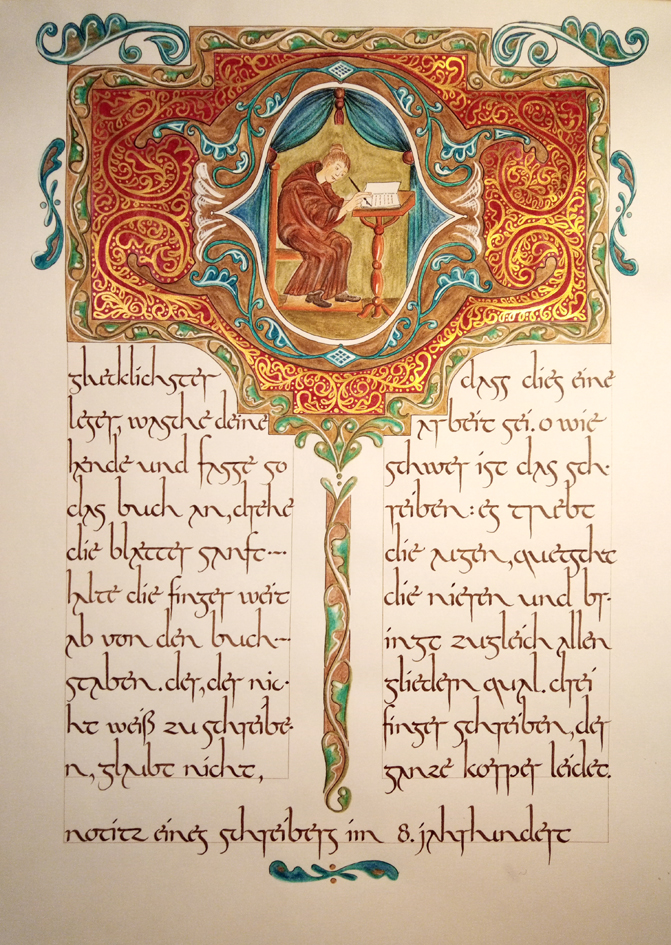 gluecklichster
leser, wasche deine
haende und fasse so
das buch an, drehe
die blaetter sanft~
halte die finger weit
ab von den buch~
staben. der, der nic-
ht weiß zu schreibe-
n, glaubt nicht,
dass dies eine
arbeit sei. o wie
schwer ist das sch-
reiben: es truebt
die augen, quetscht
die nieren und br-
ingt zugleich allen
gliedern qual. drei
finger schreiben, der
ganze koerper leidet.
notitz eines schreibers im 8. jahrhundert